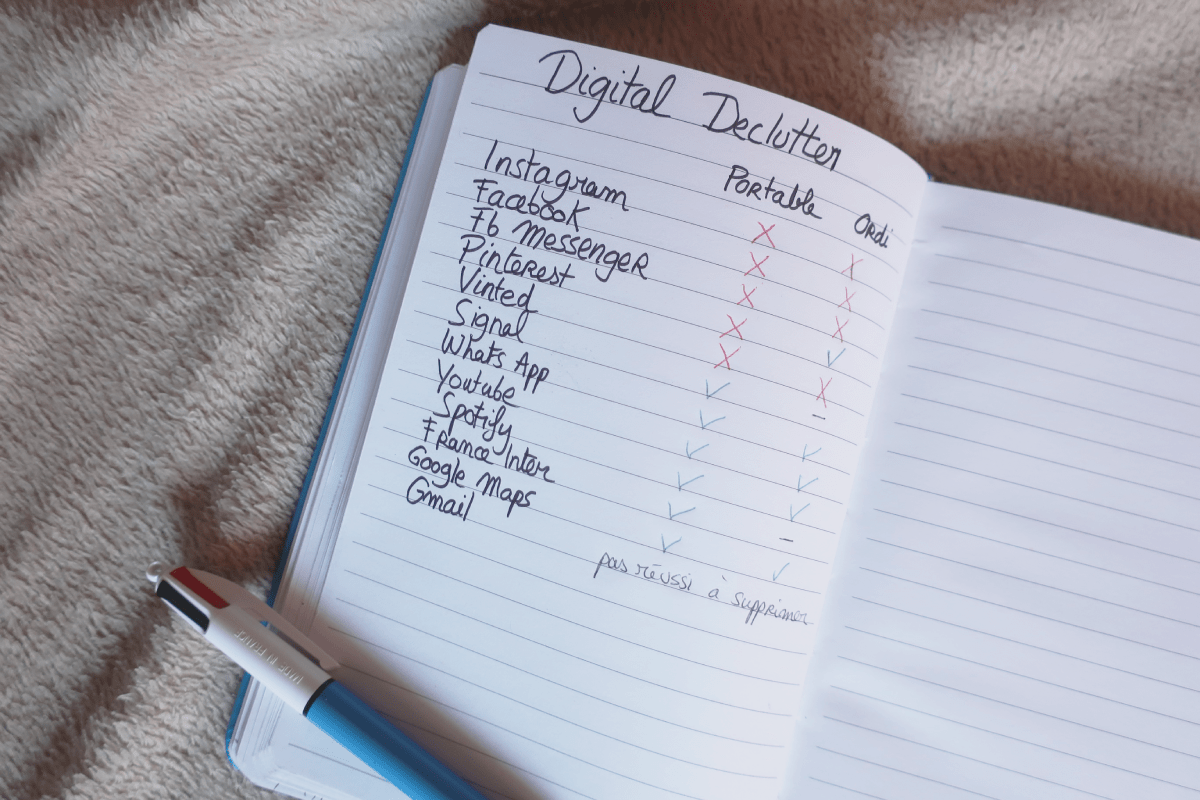 Digital Declutter
Portable Ordi
Instagram X X
Facebook X X
Fb Messenger X X
Pinterest X ✓
Vinted X X
Signal ✓ –
Whats App ✓ ✓
Youtube ✓ ✓
Spotify ✓ ✓
France Inter ✓ –
Google Maps ✓ ✓
Gmail pas réussi à supprimer